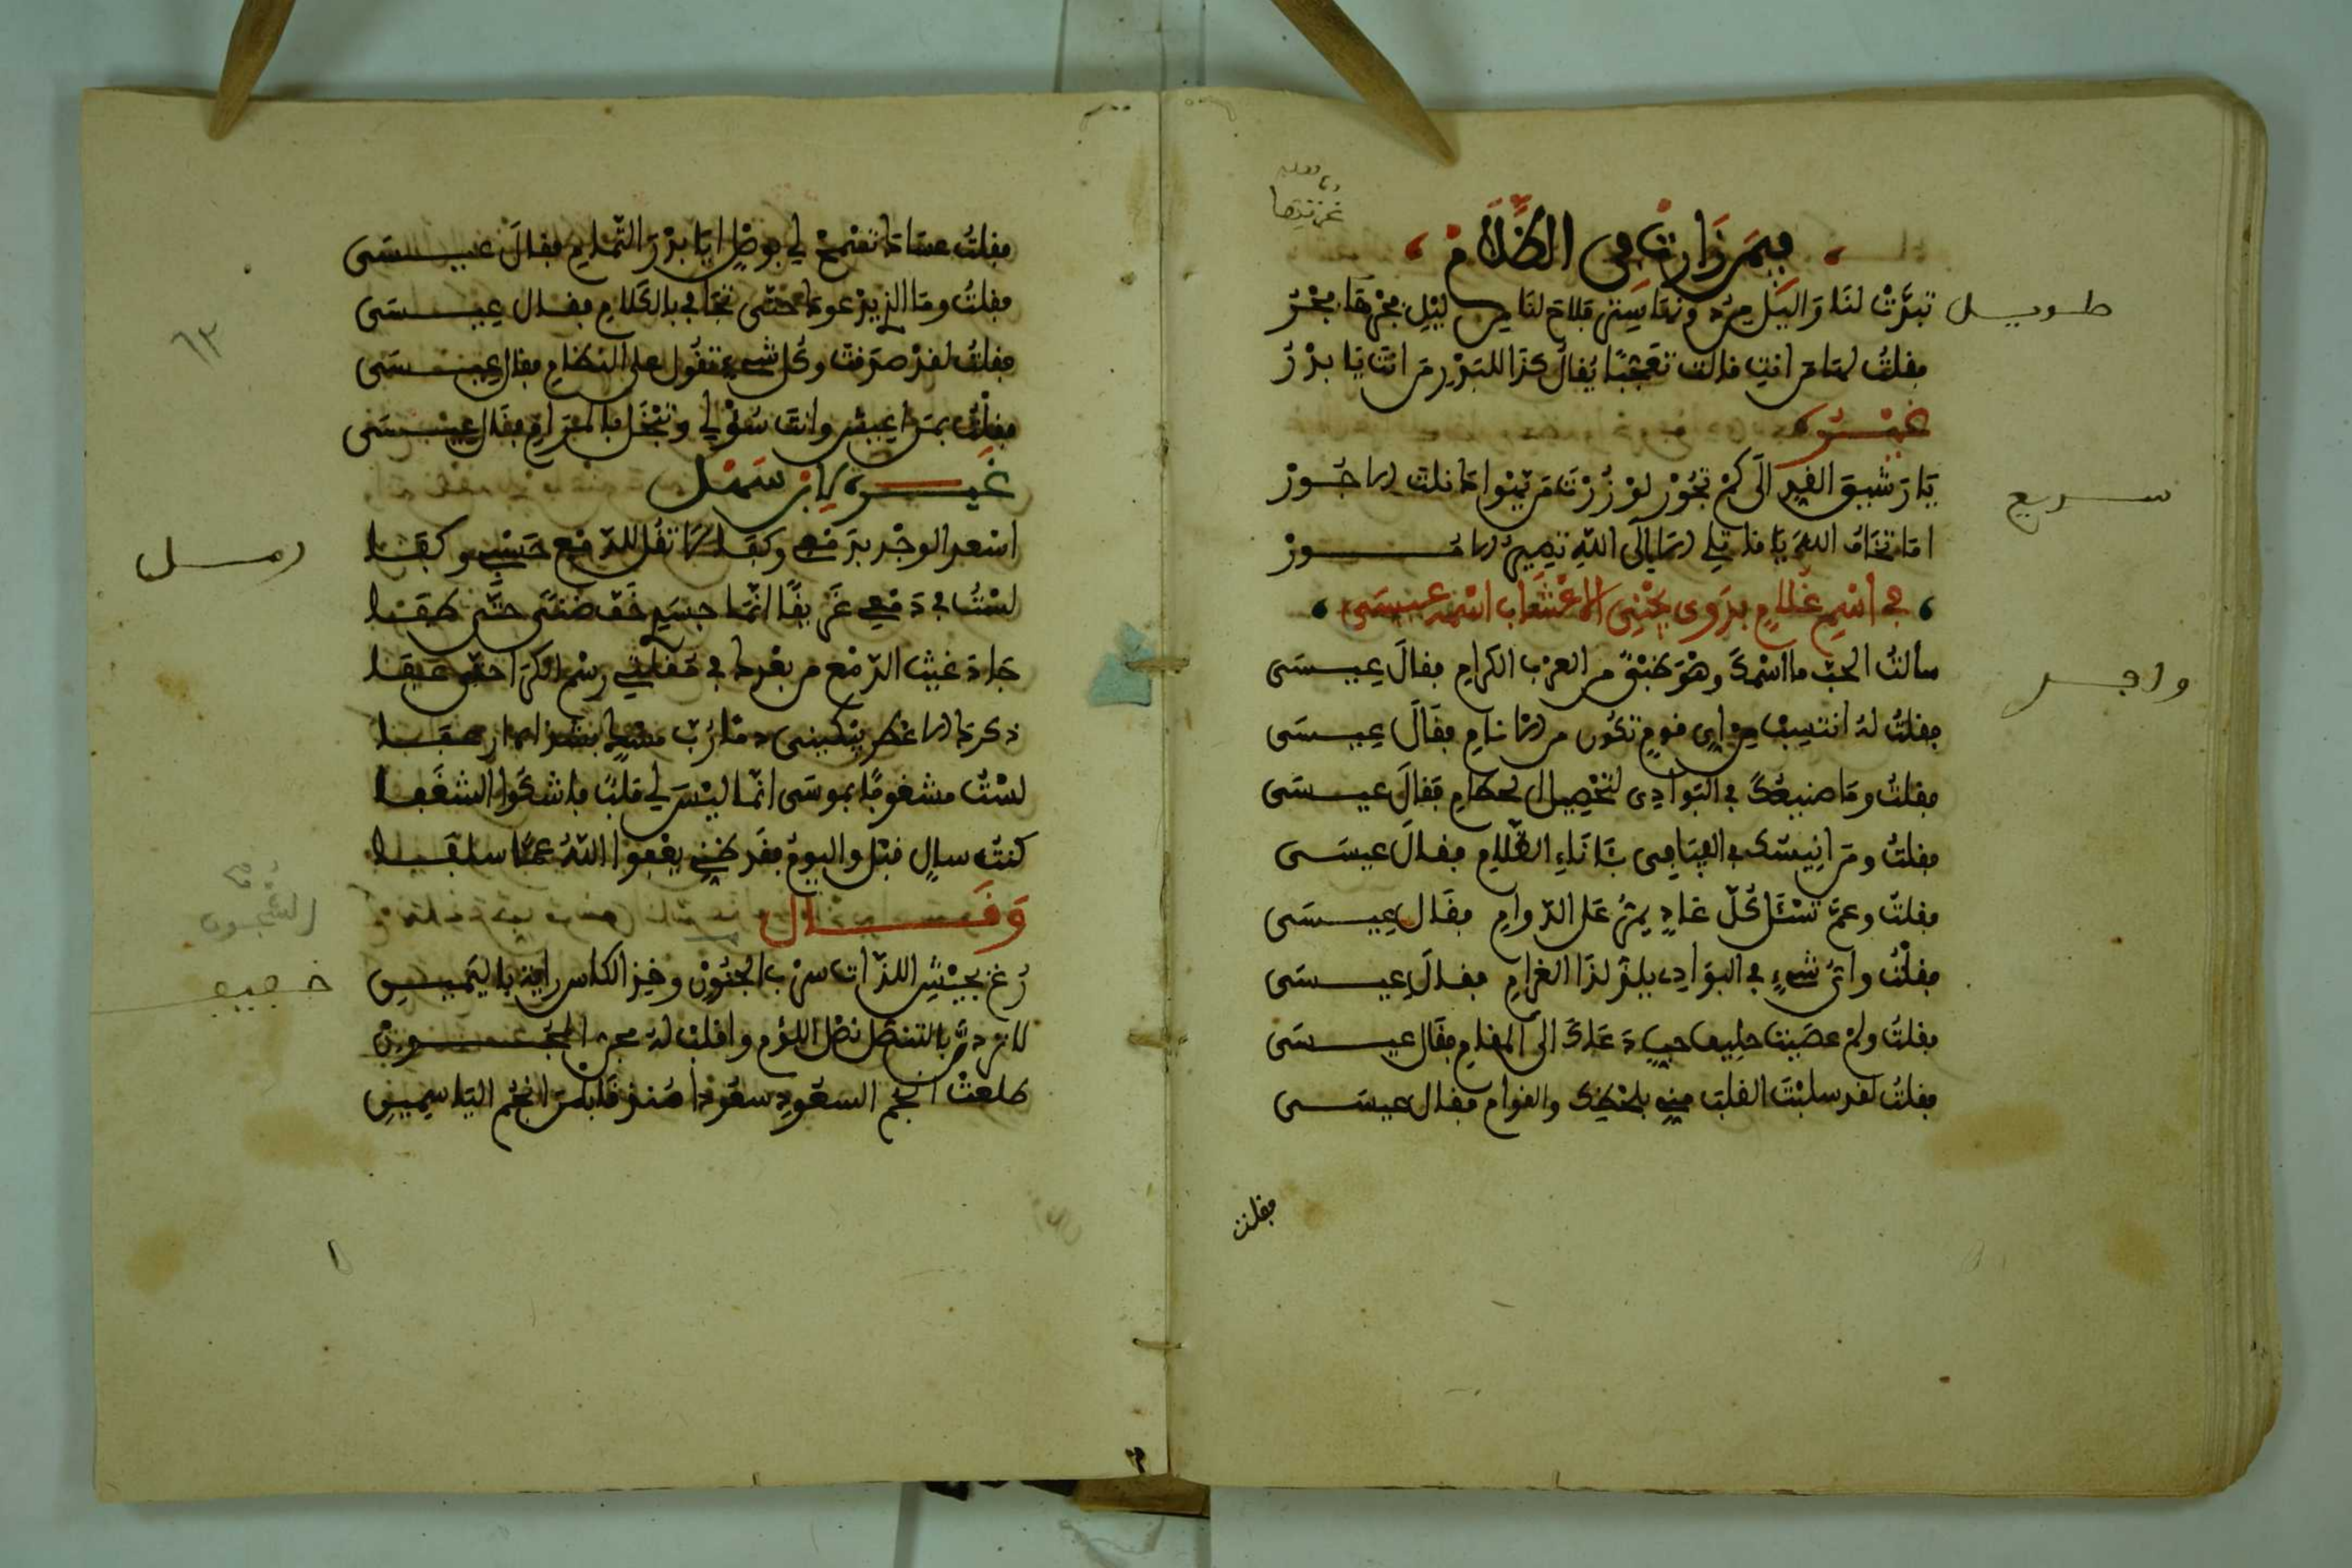 فيمن زارت في الظلام
غرتها
طويل
تبدت لنا والليل مرخ ونها ستره فلاح لنا من ليل مجرقها فجر
فقلت لها من انت قالت تعجبا يقال كذا للبدر من انت يا بدر
غيره
سريع
يا رشيق القد الى كم تجور لو زرت من تيموا ما نلت الاجور
اما تخاف الله يا قاتلي الا الى الله تصير الامور
في اسم غلام بدوي يجني الاعشاب اسمه عيسى
وافر
سألت الحب ما اسمك وهو ظبي من العرب الكرام فقال عيسى
فقلت له انتسب من اي قوم تكون من الانام فقال عيسى
فقلت وما صنيعك في البوادي لتحصيل الحطام فقال عيسى
فقلت ومن انيسك في الفيافي بآناء الظلام فقال عيسى
فقلت وعم تسئل كل غاد يمر على الدوام فقال عيسى
فقلت واي شيء في البوادي يلذ لذا الغرام فقال عيسى
فقلت ولم عصيت حليف حب دعاك الى المقام فقال عيسى
فقلت لقد سلبت القلب مني بلحظك والقوام فقال عيسى
فقلت
٦٣
فقلت عساك تسمح لي بوصل ايا بدر التمام فقال عيسى
فقلت وما الذي يدعوك حتى تجافي بالكلام فقال عيسى
فقلت لقد صدقت وكل شيء تقول على النظام فقال عيسى
فقلت بمن اعيش وانت سؤلي وتبخل بالمرام فقال عيسى
غيره لابن سهل
رمل
اسعد الوجد بدمعي وكفا لا تقل للدمع حسبي وكفا
لست في دمعي غريقا انما جسمي خف ضنى حتى طفا
جاد غيث الدمع من بعدك في مقلتي رسم الكرا حتى عفا
ذكرك الاعطر يبكيني دما رب مسك بشذاه ارعفا
لست مشغوفا بموسى انما ليس لي قلب فاشكوا الشغفا
كنت سال قبل واليوم فقد ظني يعفوا الله عما سلفا
وقال
الشجون
خفيف
رع بجيش اللذات سرب الجنون وخذ الكاس راية باليمين
طلعت انجم السعود سعودا عندما قابلت انجم الياسمين